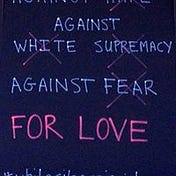 AGAINST HATE
AGAINST
WHITE SUPREMACY
AGAINST FEAR
FOR LOVE